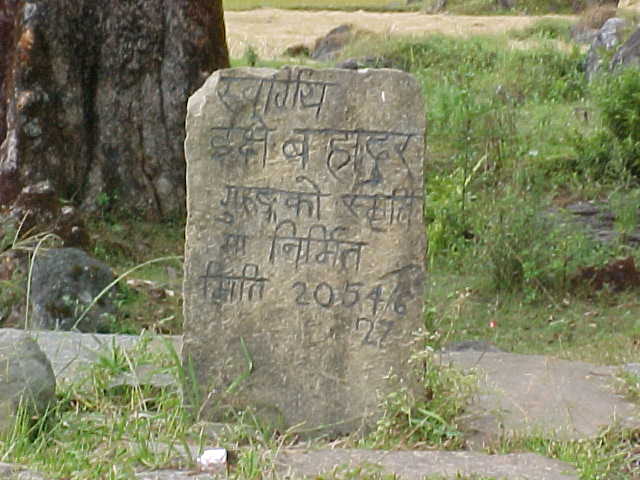 स्वर्गिय
ईन्द्र बहादुर
गुरुङ्गको स्मृति
मा निर्मित
मिति 2054/6
27